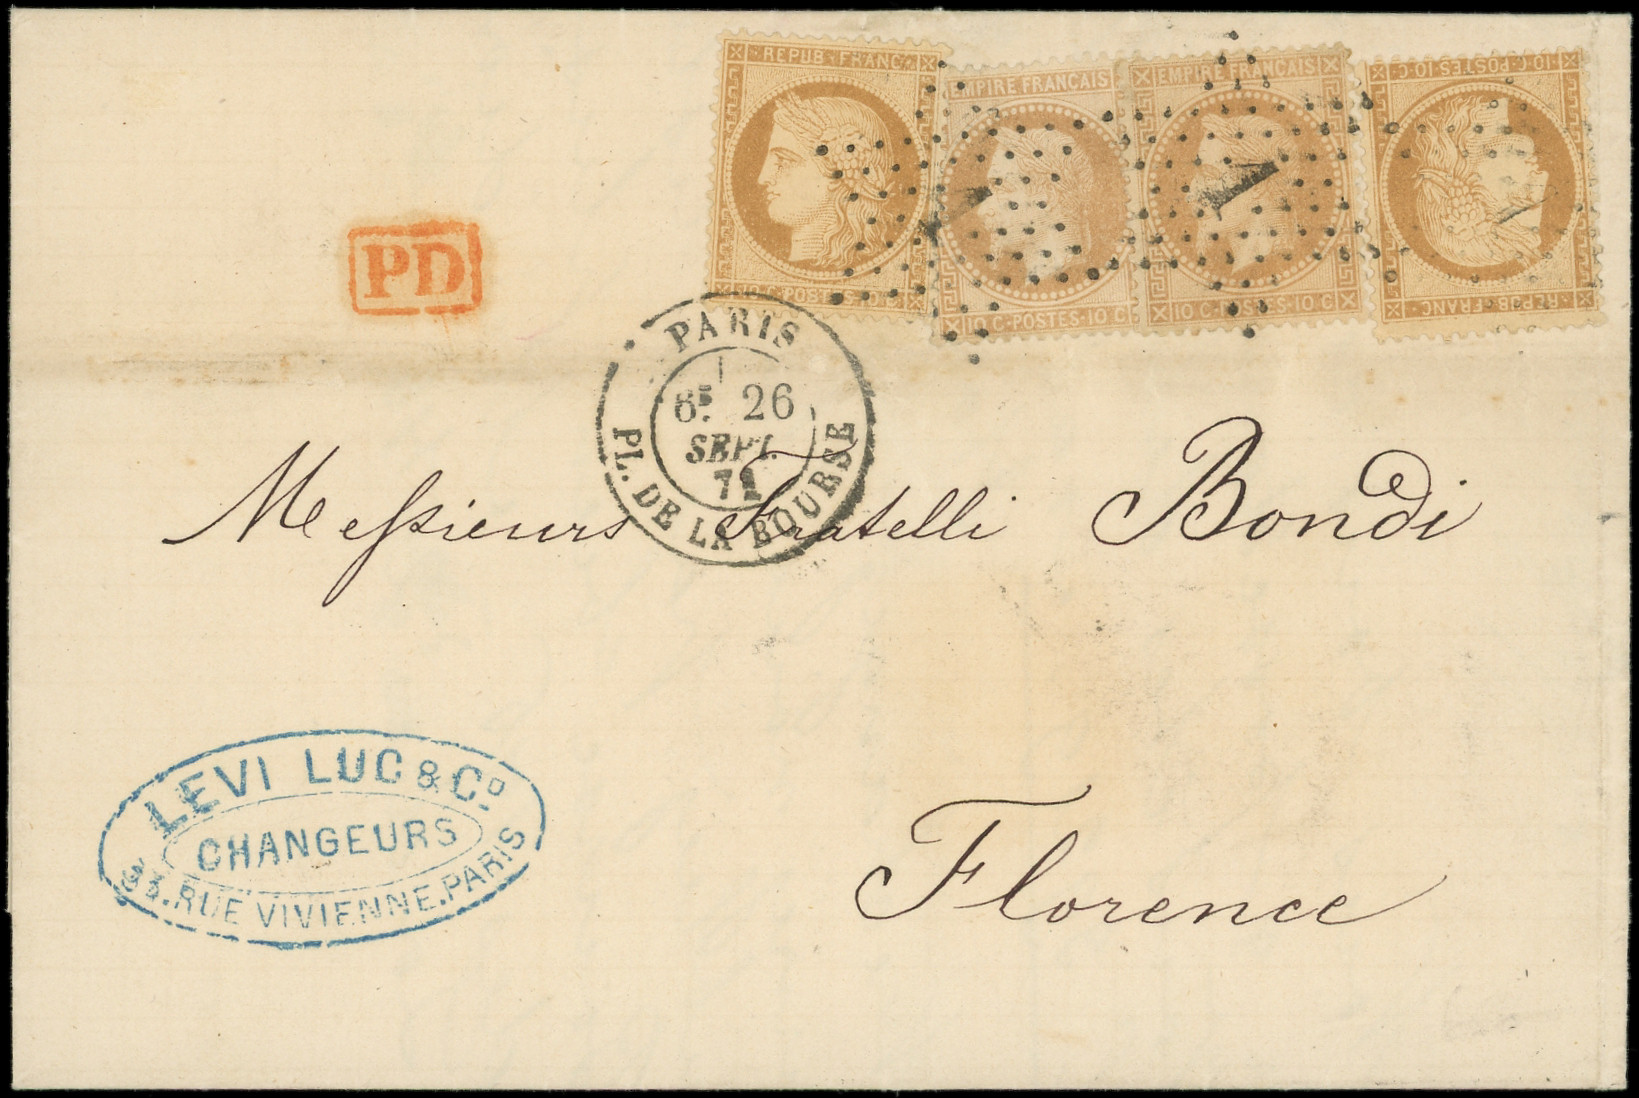 REPUB·FRANC·
10·C·POSTES·10·C
EMPIRE FRANÇAIS
10 C·POSTES·10 C
EMPIRE FRANÇAIS
10 C·POSTES·10 C
REPUB·FRANC·
10·C·POSTES·10·C
1
1
1
PD
PARIS
26
SEPT.
PL. DE LA BOURSE
Messieurs Fratelli Bondi
LEVI LUC & Cº
CHANGEURS
33. RUE VIVIENNE. PARIS
Florence